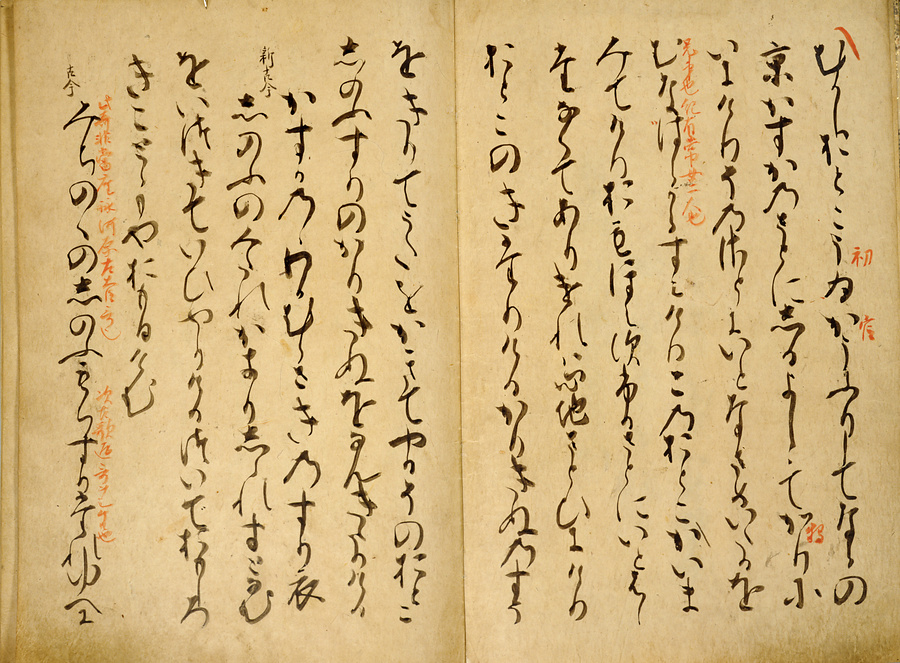 むかしおとこうゐかうふりしてならの
初冠
京かすかのさとにしるよしゝてかりに
狩
いにけりそのさとにいとなまめいたるを
むなはらからすみけりこのおとこかいま
みてけりおもほえす布るさとにいとはし
たなくてありけれは心地まとひにけり
おとこのきたりけるかりきぬのすそ
をきりてうたをかきてやるそのおとこ
しのふすりのかりきぬをなんきたりける
新古今
かすかのゝわかむらさきのすり衣
しのふのみたれかきりしられすとなむ
をいつきていひやりけるついておもしろ
きことゝもやおもひけむ
古今
みちのくのしのふもちすりたれゆへ